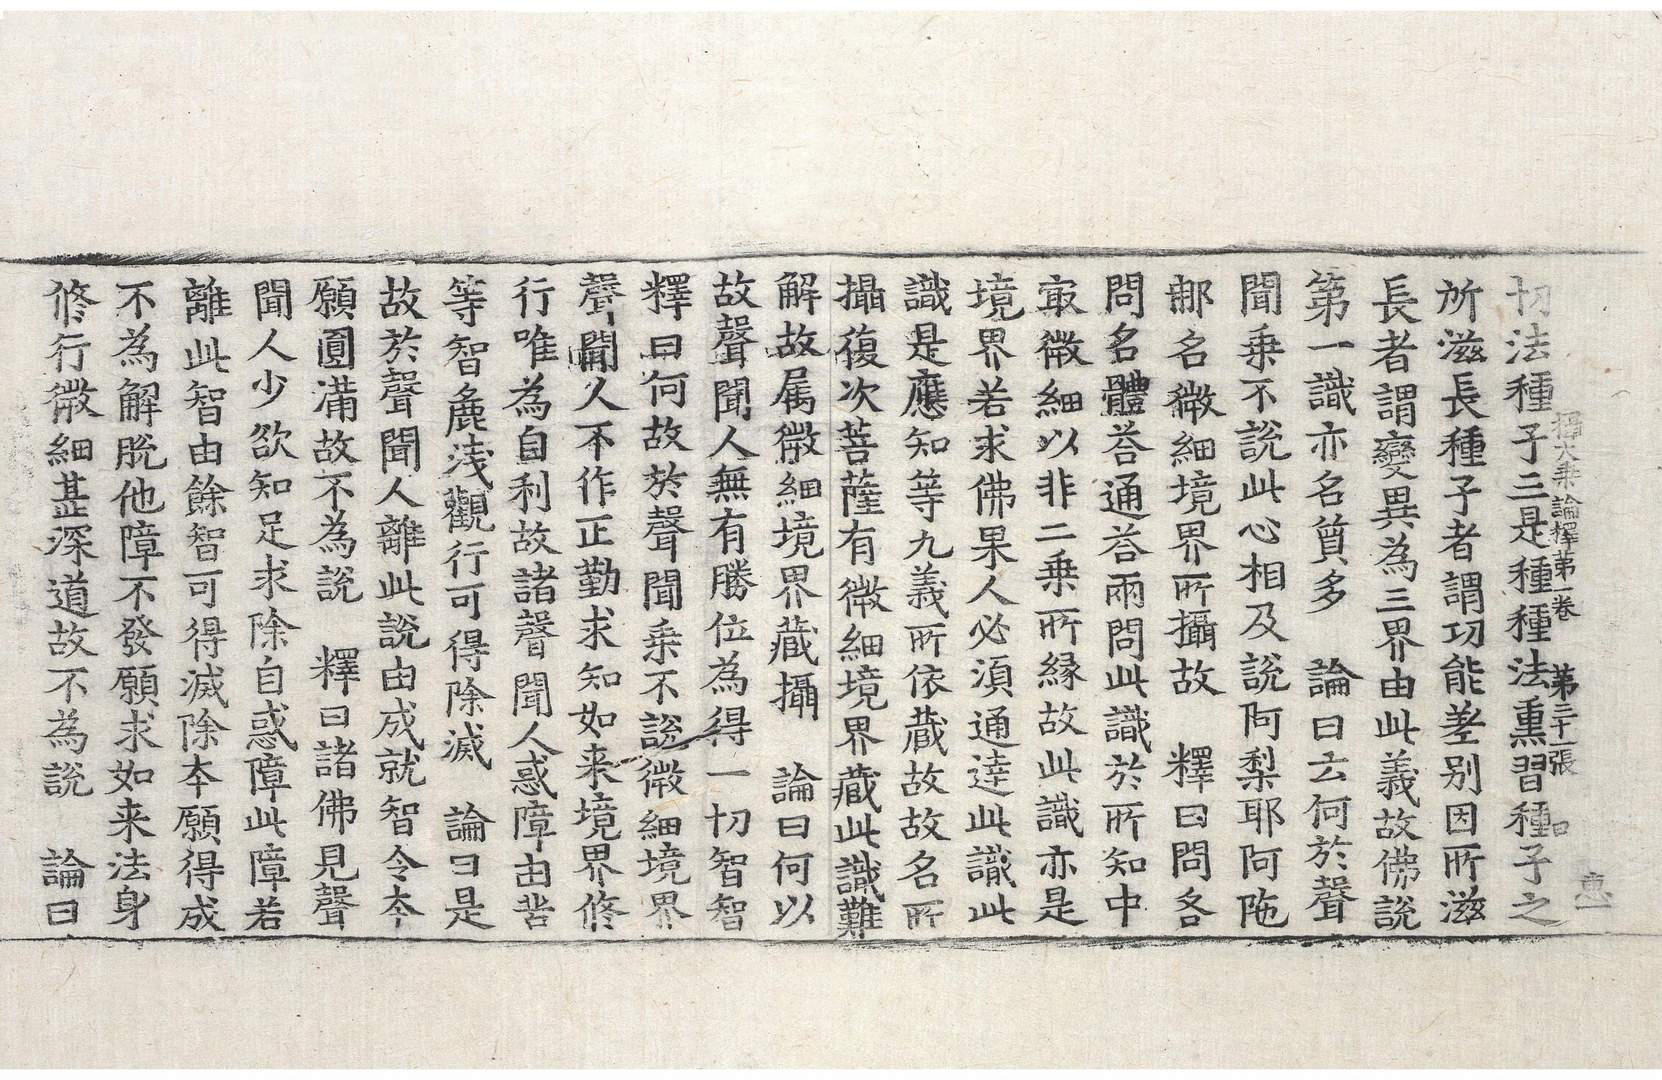 攝大乘論釋第一卷　第二十一張　口
惠
切法種子三是種種法熏習種子之
所滋長種子者謂功能差别因所滋
長者謂變異為三界由此義故佛說
第一識亦名質多　論曰云何於聲
聞乗不說此心相及說阿梨耶阿陁
那名微細境界所攝故　釋曰問各
問名體荅通荅兩問此識於所知中
冣微細以非二乗所縁故此識亦是
境界若求佛果人必湏通達此識此
識是應知等九義所依蔵故故名所
攝復次菩薩有微細境界蔵此識難
解故属微細境界蔵攝　論曰何以
故聲聞人無有勝位為得一切智智
釋曰何故於聲聞乗不說微細境界
聲聞人不作正勤求知如来境界修
行唯為自利故諸聲聞人惑障由苦
等智麁浅觀行可得除滅　論曰是
故於聲聞人離此說由成就智令夲
願圓滿故不為說　釋曰諸佛見聲
聞人少欲知足求除自惑障此障若
離此智由餘智可得滅除夲願得成
不為解脫他障不發願求如来法身
修行微細甚深道故不為說　論曰